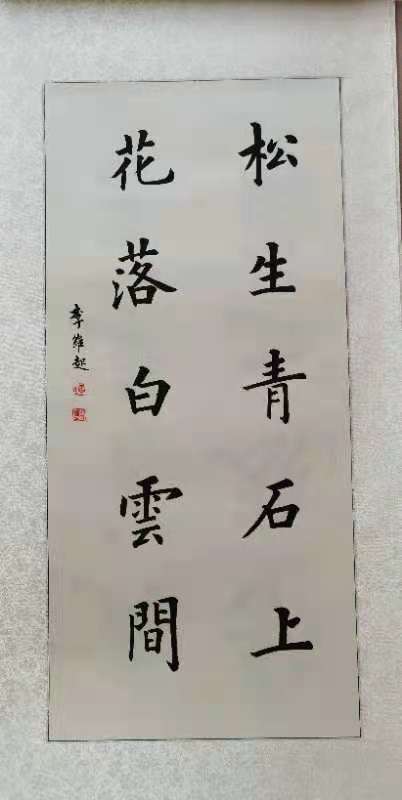 松生青石上
花落白雲間
李維起